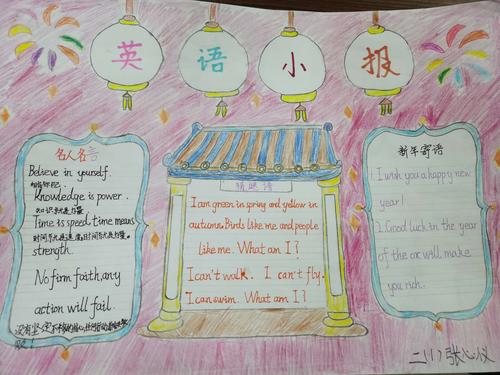 英语小报
名人名言
Believe in yourself.
相信你自己.
Knowledge is power.
知识就是力量
Time is speed, time means
时间就是速度,时间就是力量.
strength.
No firm faith, any
action will fail.
没有坚定不移的信心,任何行动都会失败!
猜谜语
I am green in spring and yellow in
autumn. Birds like me and people
like me. What am I?
I can't walk. I can't fly.
I can swim. What am I?
新年寄语
1. I wish you a happy new
year!
2. Good luck in the year
of the ox will make
you rich.
二(1)张心仪